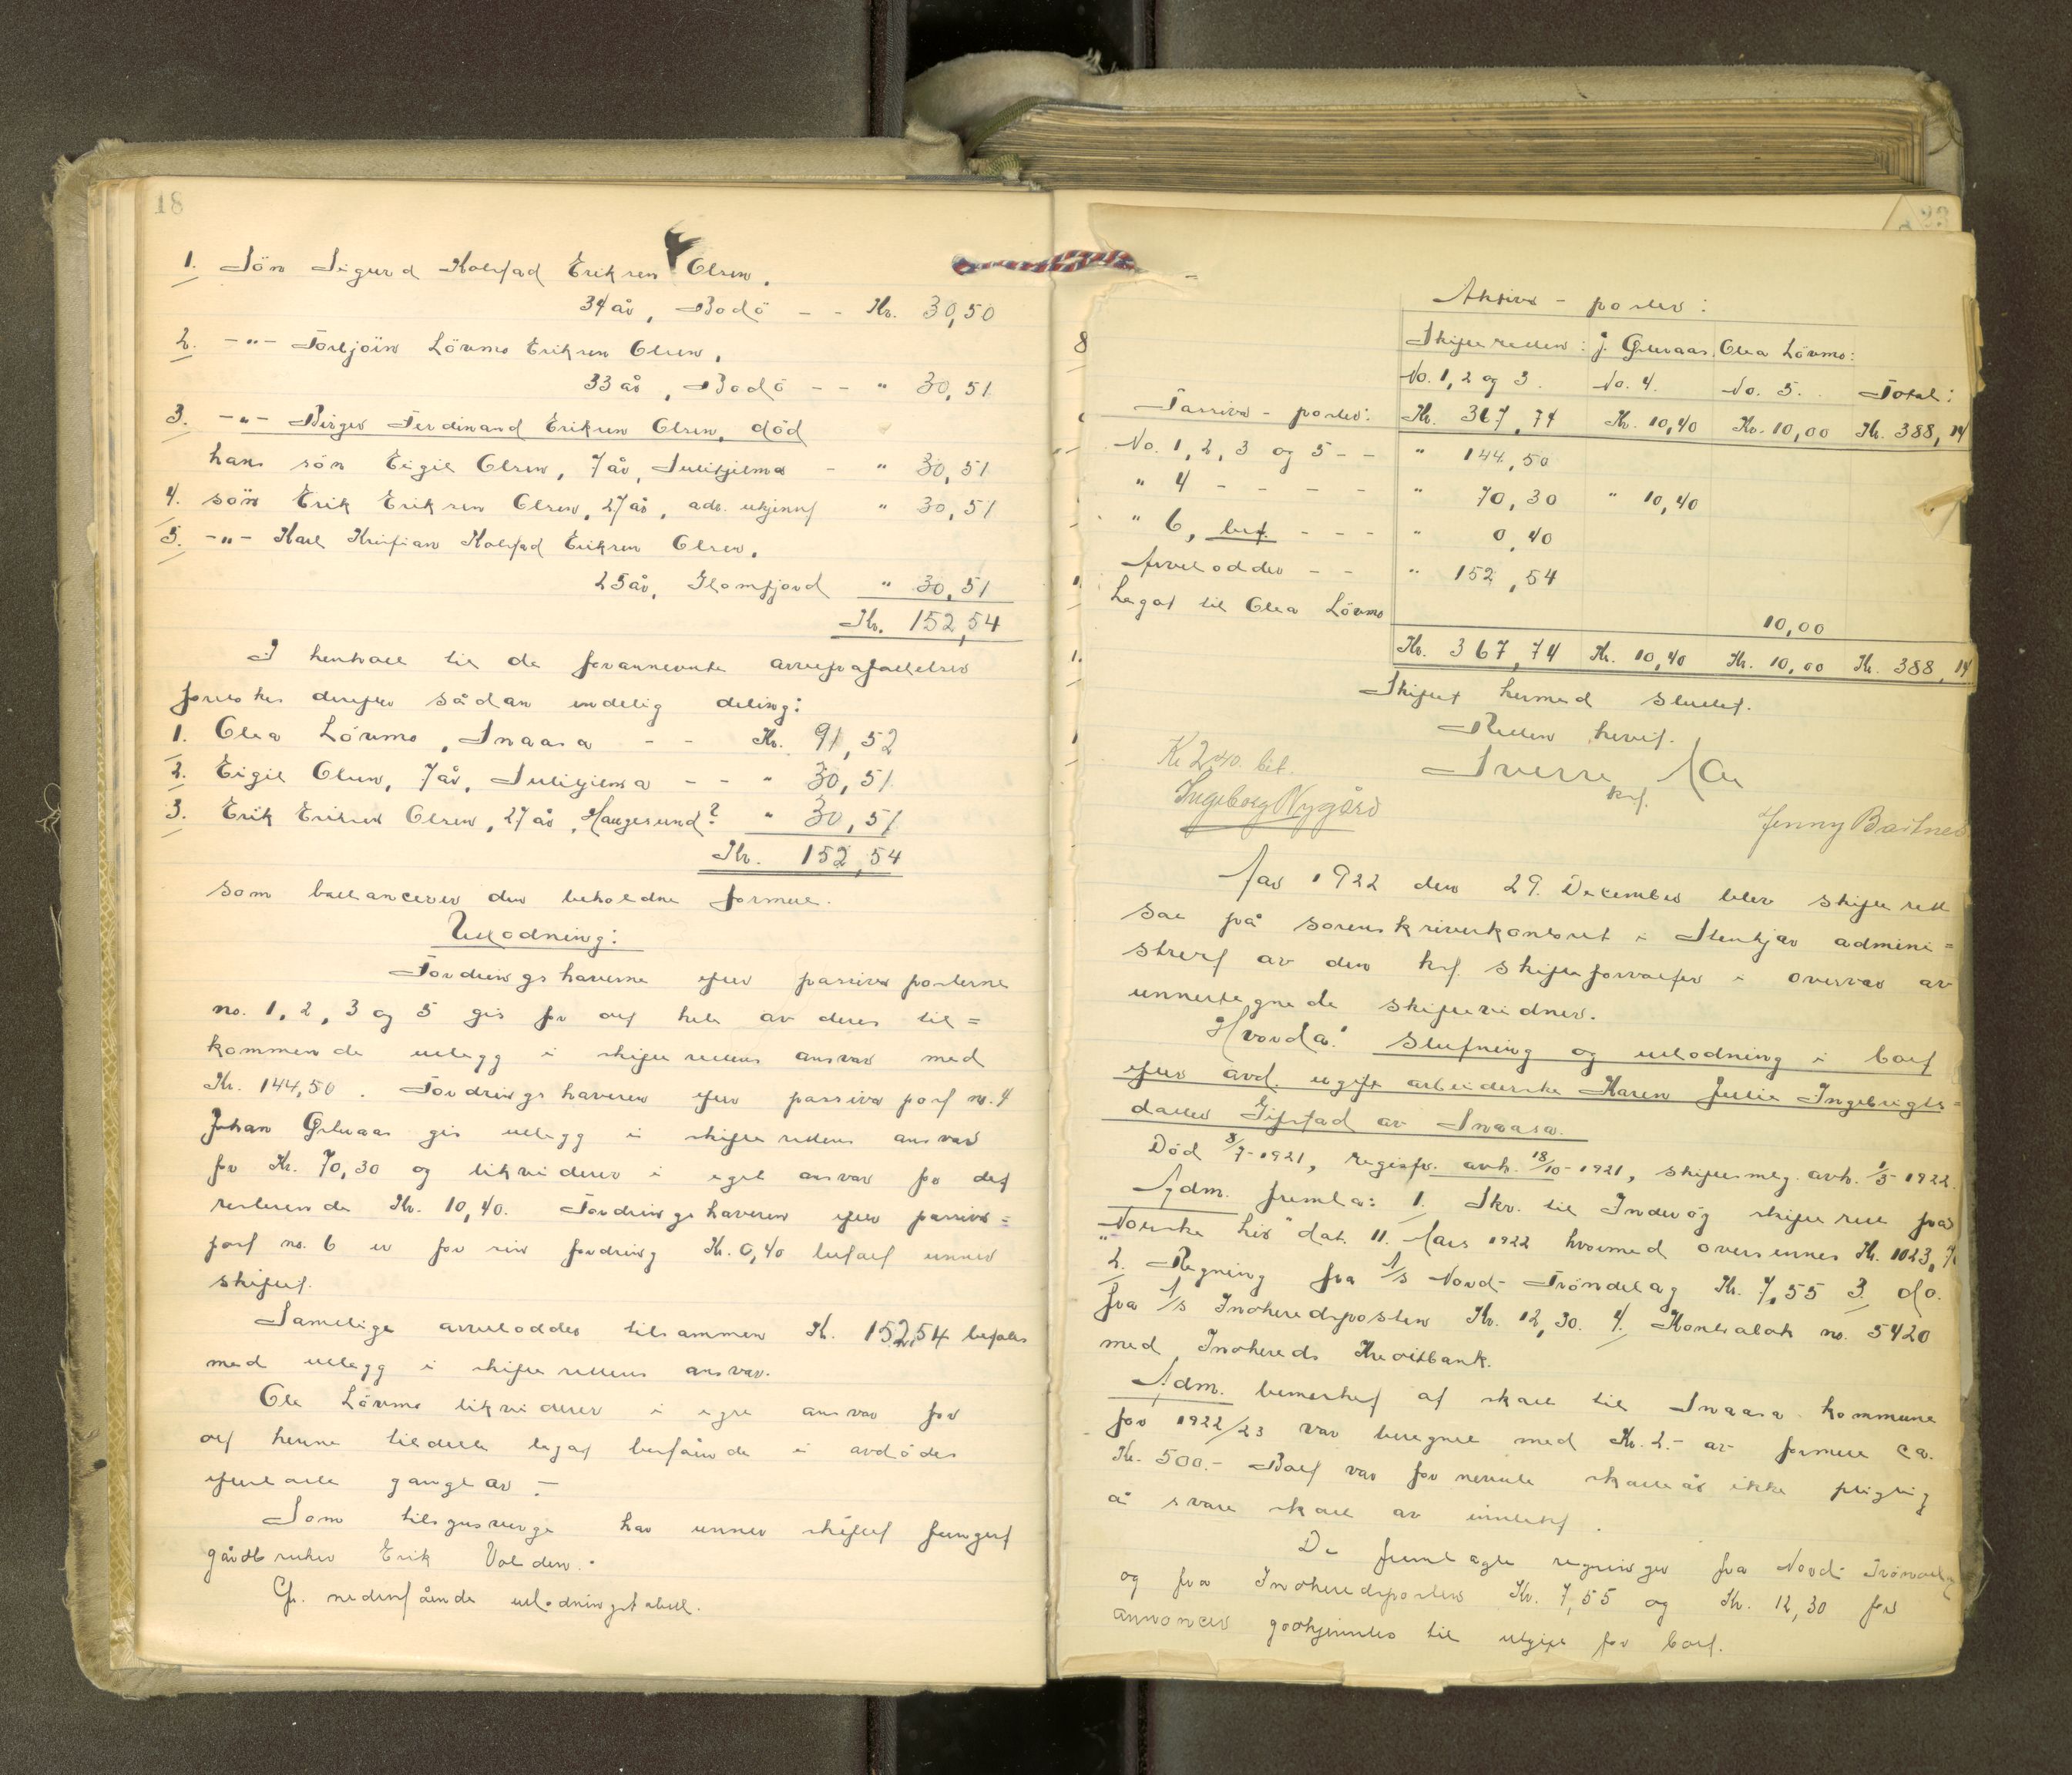 18
1. Sön Sigurd Kolstad Eriksen Olsen,
34 år, Bodö - - Kr. 30,50
2. -"- Torbjörn Lövmo Eriksen Olsen,
33 år, Bodö - - " 30,51
3. -"- Birger Ferdinand Eriksen Olsen, död
hans sön Eigil Olsen, 7 år, Sulitjelma - " 30,51
4. sön Erik Eriksen Olsen, 27 år, adr. ukjennt " 30,51
5. -"- Karl Kristian Kolstad Eriksen Olsen,
25 år, Glomfjord " 30,51
Kr. 152,54
I henhold til de forannevnte arveprafallelser
foretokes derefter sådan endelig deling:
1. Olea Lövmo, Snaasa - - Kr. 91,52
2. Eigil Olsen, 7 år, Sulitjelma - - " 30,51
3. Erik Eriksen Olsen, 27 år, Haugesund? " 30,51
Kr. 152,54
som ballancerer den beholdne formue.
Utlodning:
Fordringshaverne efter passivaposterne
no. 1, 2, 3 og 5 gis for det hele av deres til=
kommende utlegg i skifterettens ansvar med
Kr. 144,50. Fordringshaveren efter passiva post no. 4
Johan Grevaas gis utlegg i skifterettens ansvar
for Kr. 70,30 og likviderer i eget ansvar for det
resterende Kr. 10,40. Fordringshaveren efter passiva=
post no. 6 er for sin fordring Kr. 0,40 betalt under
skiftet.
Samtlige arvelodder tilsammen Kr. 152,54 befales
med utlegg i skifterettens ansvar.
Ole Lövmo likviderer i egre ansvar for
det henne tildelte legat bestående i avdödes
efterlatte gangklær.-
Som tilsynsverge har under skiftet fungert
gårdbruker Erik Volden.
Cfr. nedenstående utlodningstabell.
Aktiva - poster:
Skifteretten: J. Grevaas. Olea Lövmo:
No. 1, 2 og 3. No. 4. No. 5. Total:
Passiva - poster: Kr. 367,74 Kr. 10,40 Kr. 10,00 Kr. 388,14
No. 1, 2, 3 og 5 - - " 144,50
" 4 - - - - " 70,30 " 10,40
" 6, bet. - - - " 0,40
Arvelodder - - " 152,54
Legat til Olea Lövmo 10,00
Kr. 367,74 Kr. 10,40 Kr. 10,00 Kr. 388,14
Skiftet hermed sluttet.
Retten hevet.
Sverre
kst.
Kr 2,40 bet.
Ingeborg Nygård
Jenny
Aar 1922 den 29. December blev skifterett
sat på sorenskriverkontoret i Stenkjær admini=
strert av den kst. skifteforvalter i overvær av
unnertegnede skiftevidner.
Hvorda: Slutning og utlodning i boet
efter avd. ugift arbeiderske Karen Julie Ingebrigts=
datter Gifstad av Snaasa.
Död 8/7-1921, registr. avh. 18/10-1921, skiftesmlg. avh. 1/5-1922.
Adm. fremla: 1. Skr. til Inderög skifterett fra
"Norske Liv" dat. 11. Mars 1922 hvormed oversendes Kr. 1023,
2. Regning fra A/S Nord-Tröndelag Kr. 7,55 3. do.
fra A/S Inherredsposten Kr. 12,30. 4. Kontrabok no. 5420
med Inherreds Kreditbank.
Adm. bemerket at skatt til Snaasa kommune
for 1922/23 var beregnet med Kr. 2.- av formue ca.
Kr. 500.- Boet var for nevnte skatteår ikke pligtig
å svare skatt av inntekt.
De fremlagte regninger fra Nord-Tröndelag
og fra Inherredsposten Kr. 7,55 og Kr. 12,30 for
annoncer godkjentes til utgift for boet.